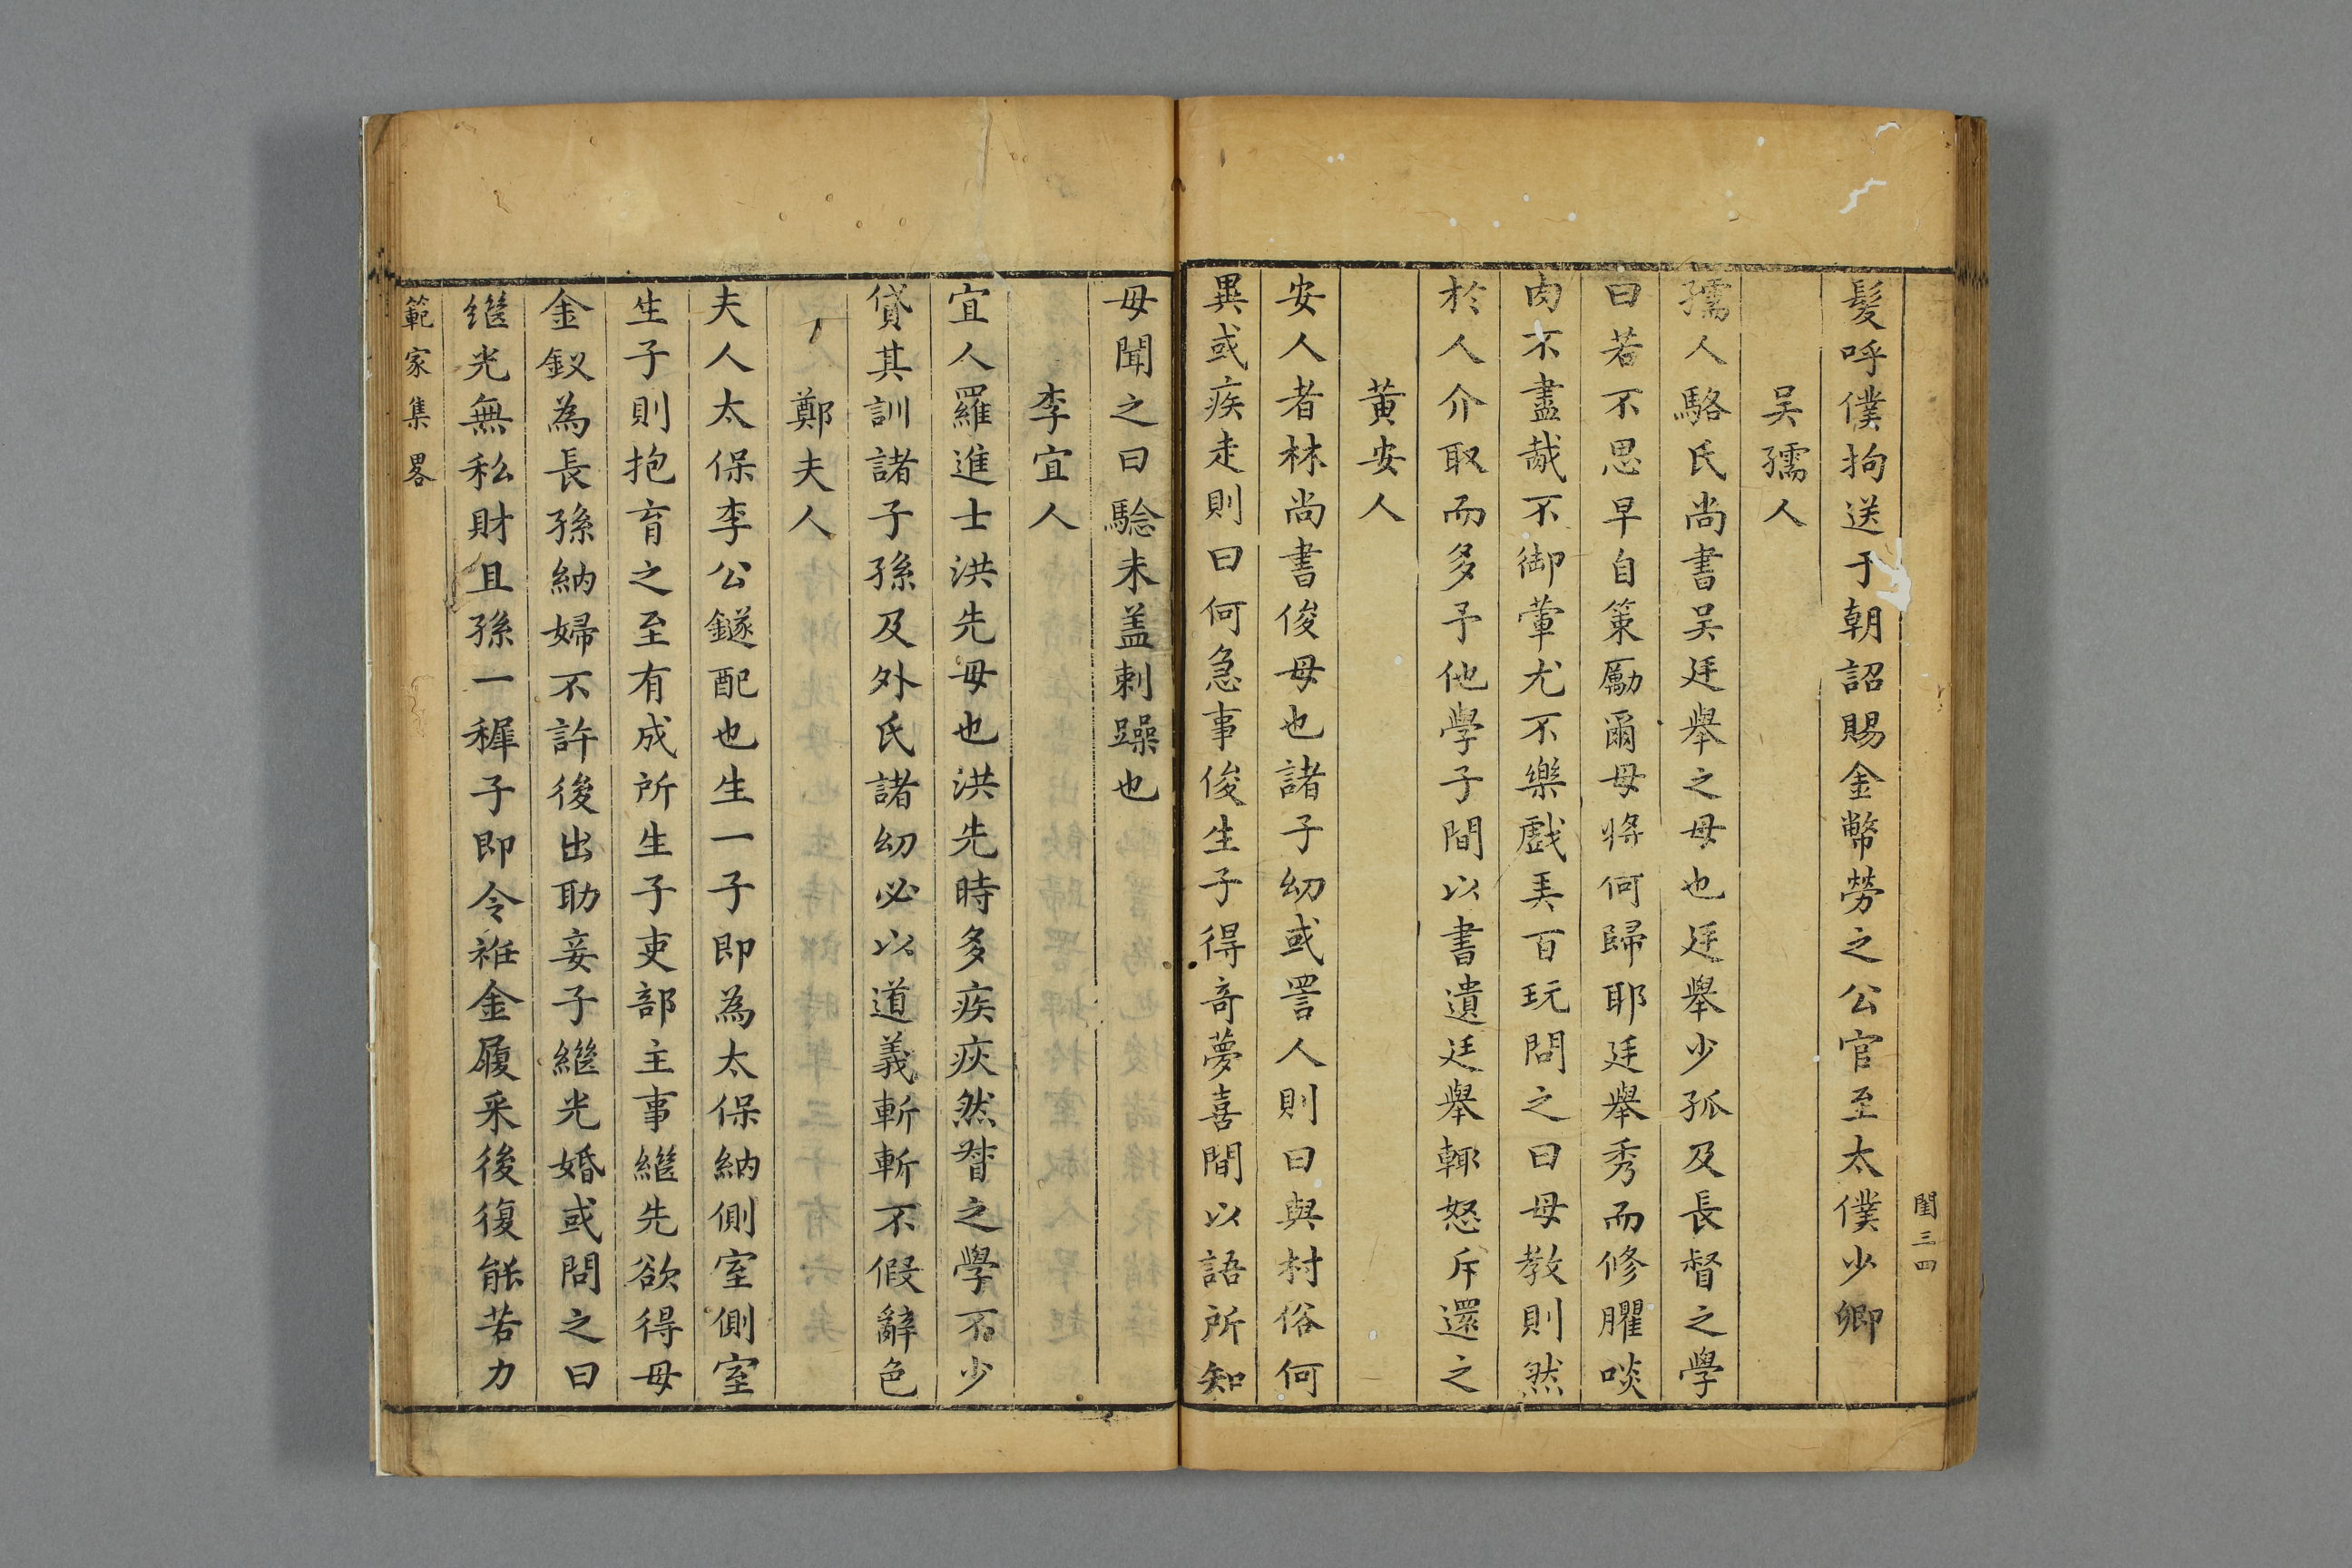 閨三四
髮呼僕拘送于朝詔賜金幣勞之公官至太僕少卿
吴孺人
孺人駱氏尚書吴廷舉之母也廷舉少孤及長督之學
曰若不思早自策勵爾母將何歸耶廷舉秀而修臞啖
肉不盡胾不御葷尤不樂戲美百玩問之曰母教則然
於人介取而多予他學子間以書遺廷舉輙怒斥還之
黄安人
安人者林尚書俊母也諸子幼或詈人則曰與村俗何
異或疾走則曰何急事俊生子得竒夢喜間以語所知
母聞之曰騐未盖剌躁也
李宜人
宜人羅進士洪先母也洪先時多疾疢然督之學不少
貸其訓諸子孫及外氏諸幼必以道義斬斬不假辭色
鄭夫人
夫人太保李公鐩配也生一子即為太保納側室側室
生子則抱育之至有成所生子吏部主事繼先欲得母
金釵為長孫納婦不許後出助妾子繼光婚或問之曰
繼光無私財且孫一穉子即令袵金履采後復能若力
範家集畧